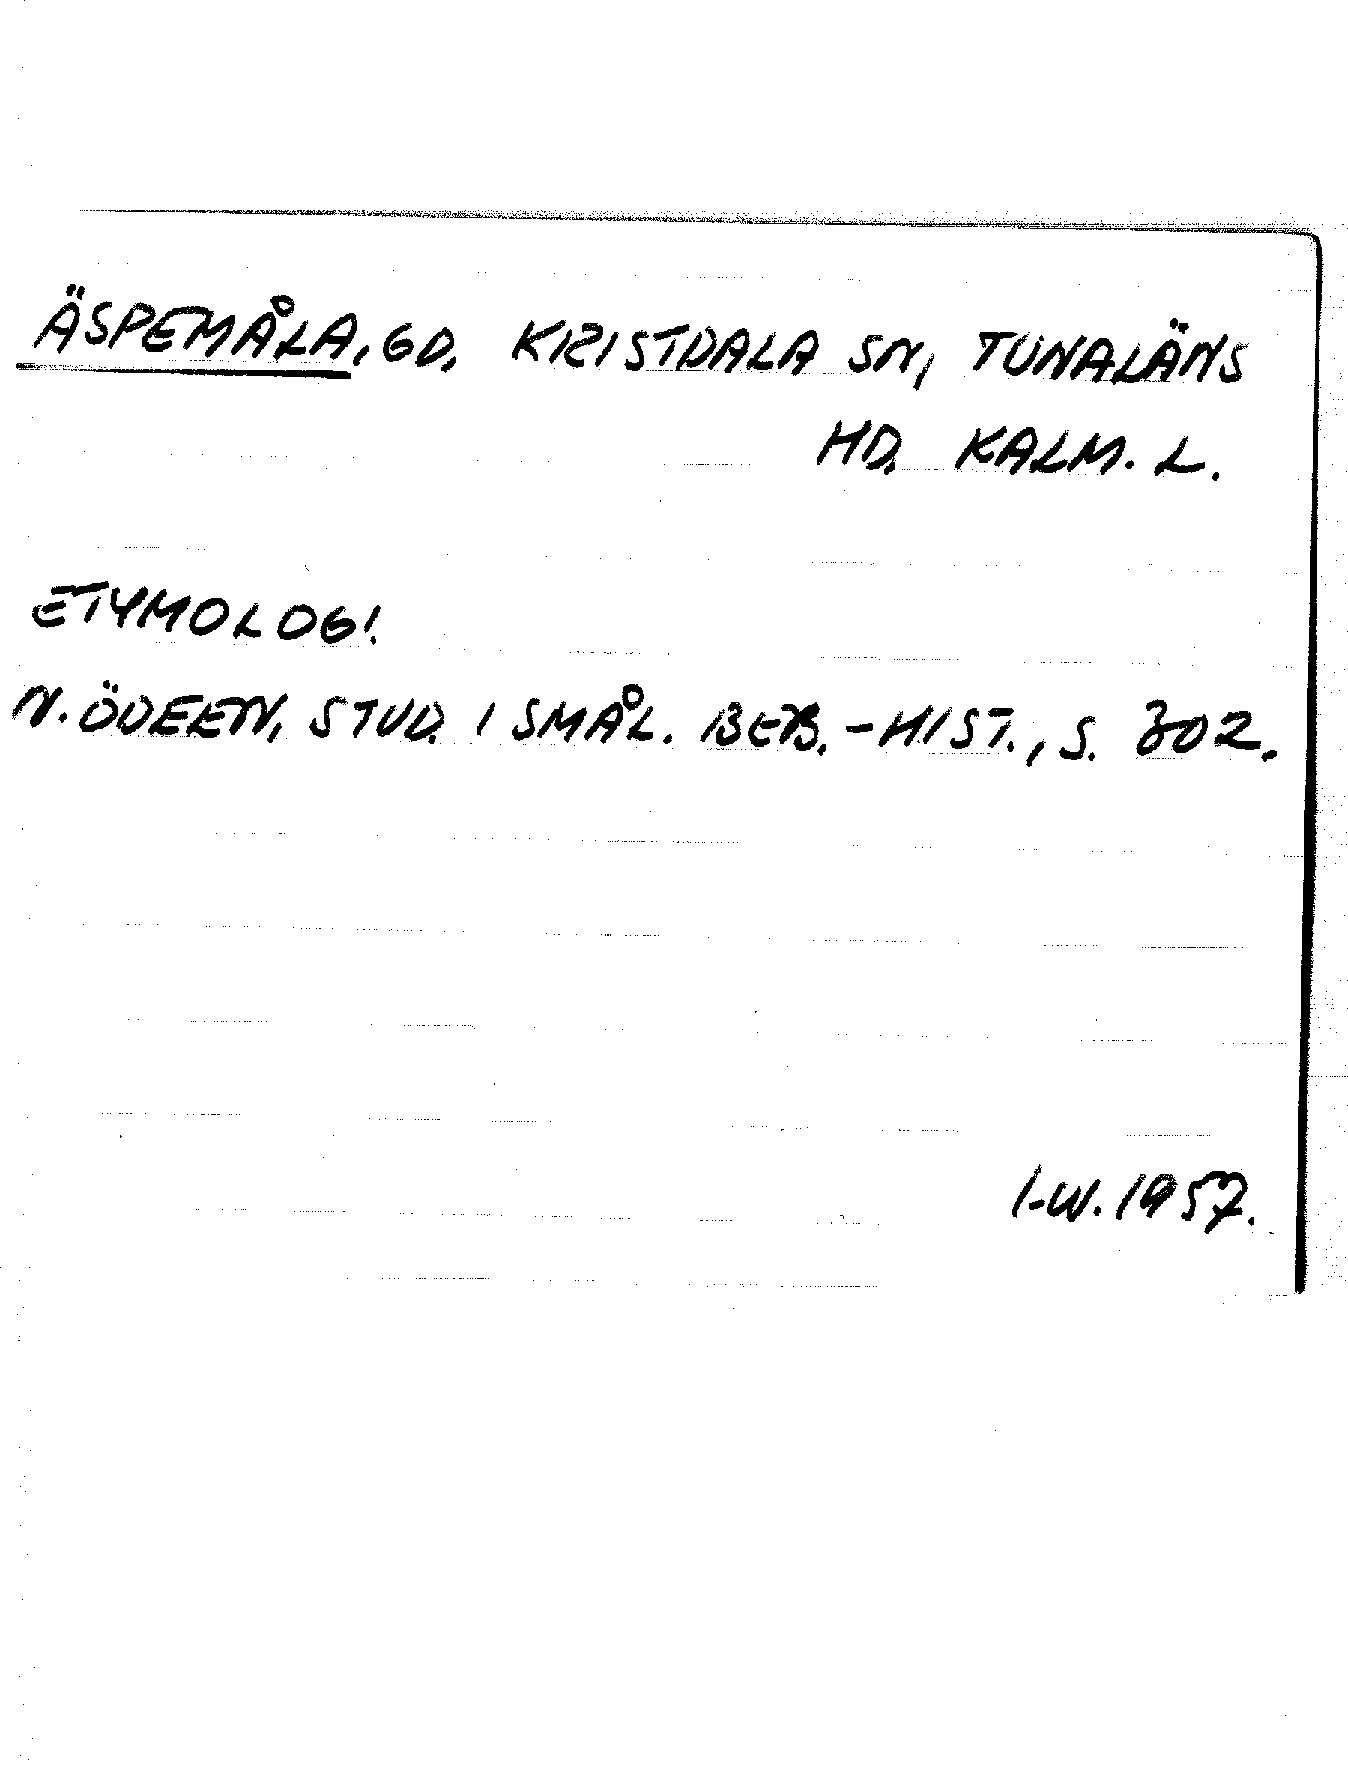 ÄSPEMÅLA, GD. KRISTDALA SN, TUNALÄNS
HD. KALM. L.
ETYMOLOGI.
N. ÖDEEN, STUD. I SMÅL. BEB.-HIST., S. 302.
I-W. 1957.